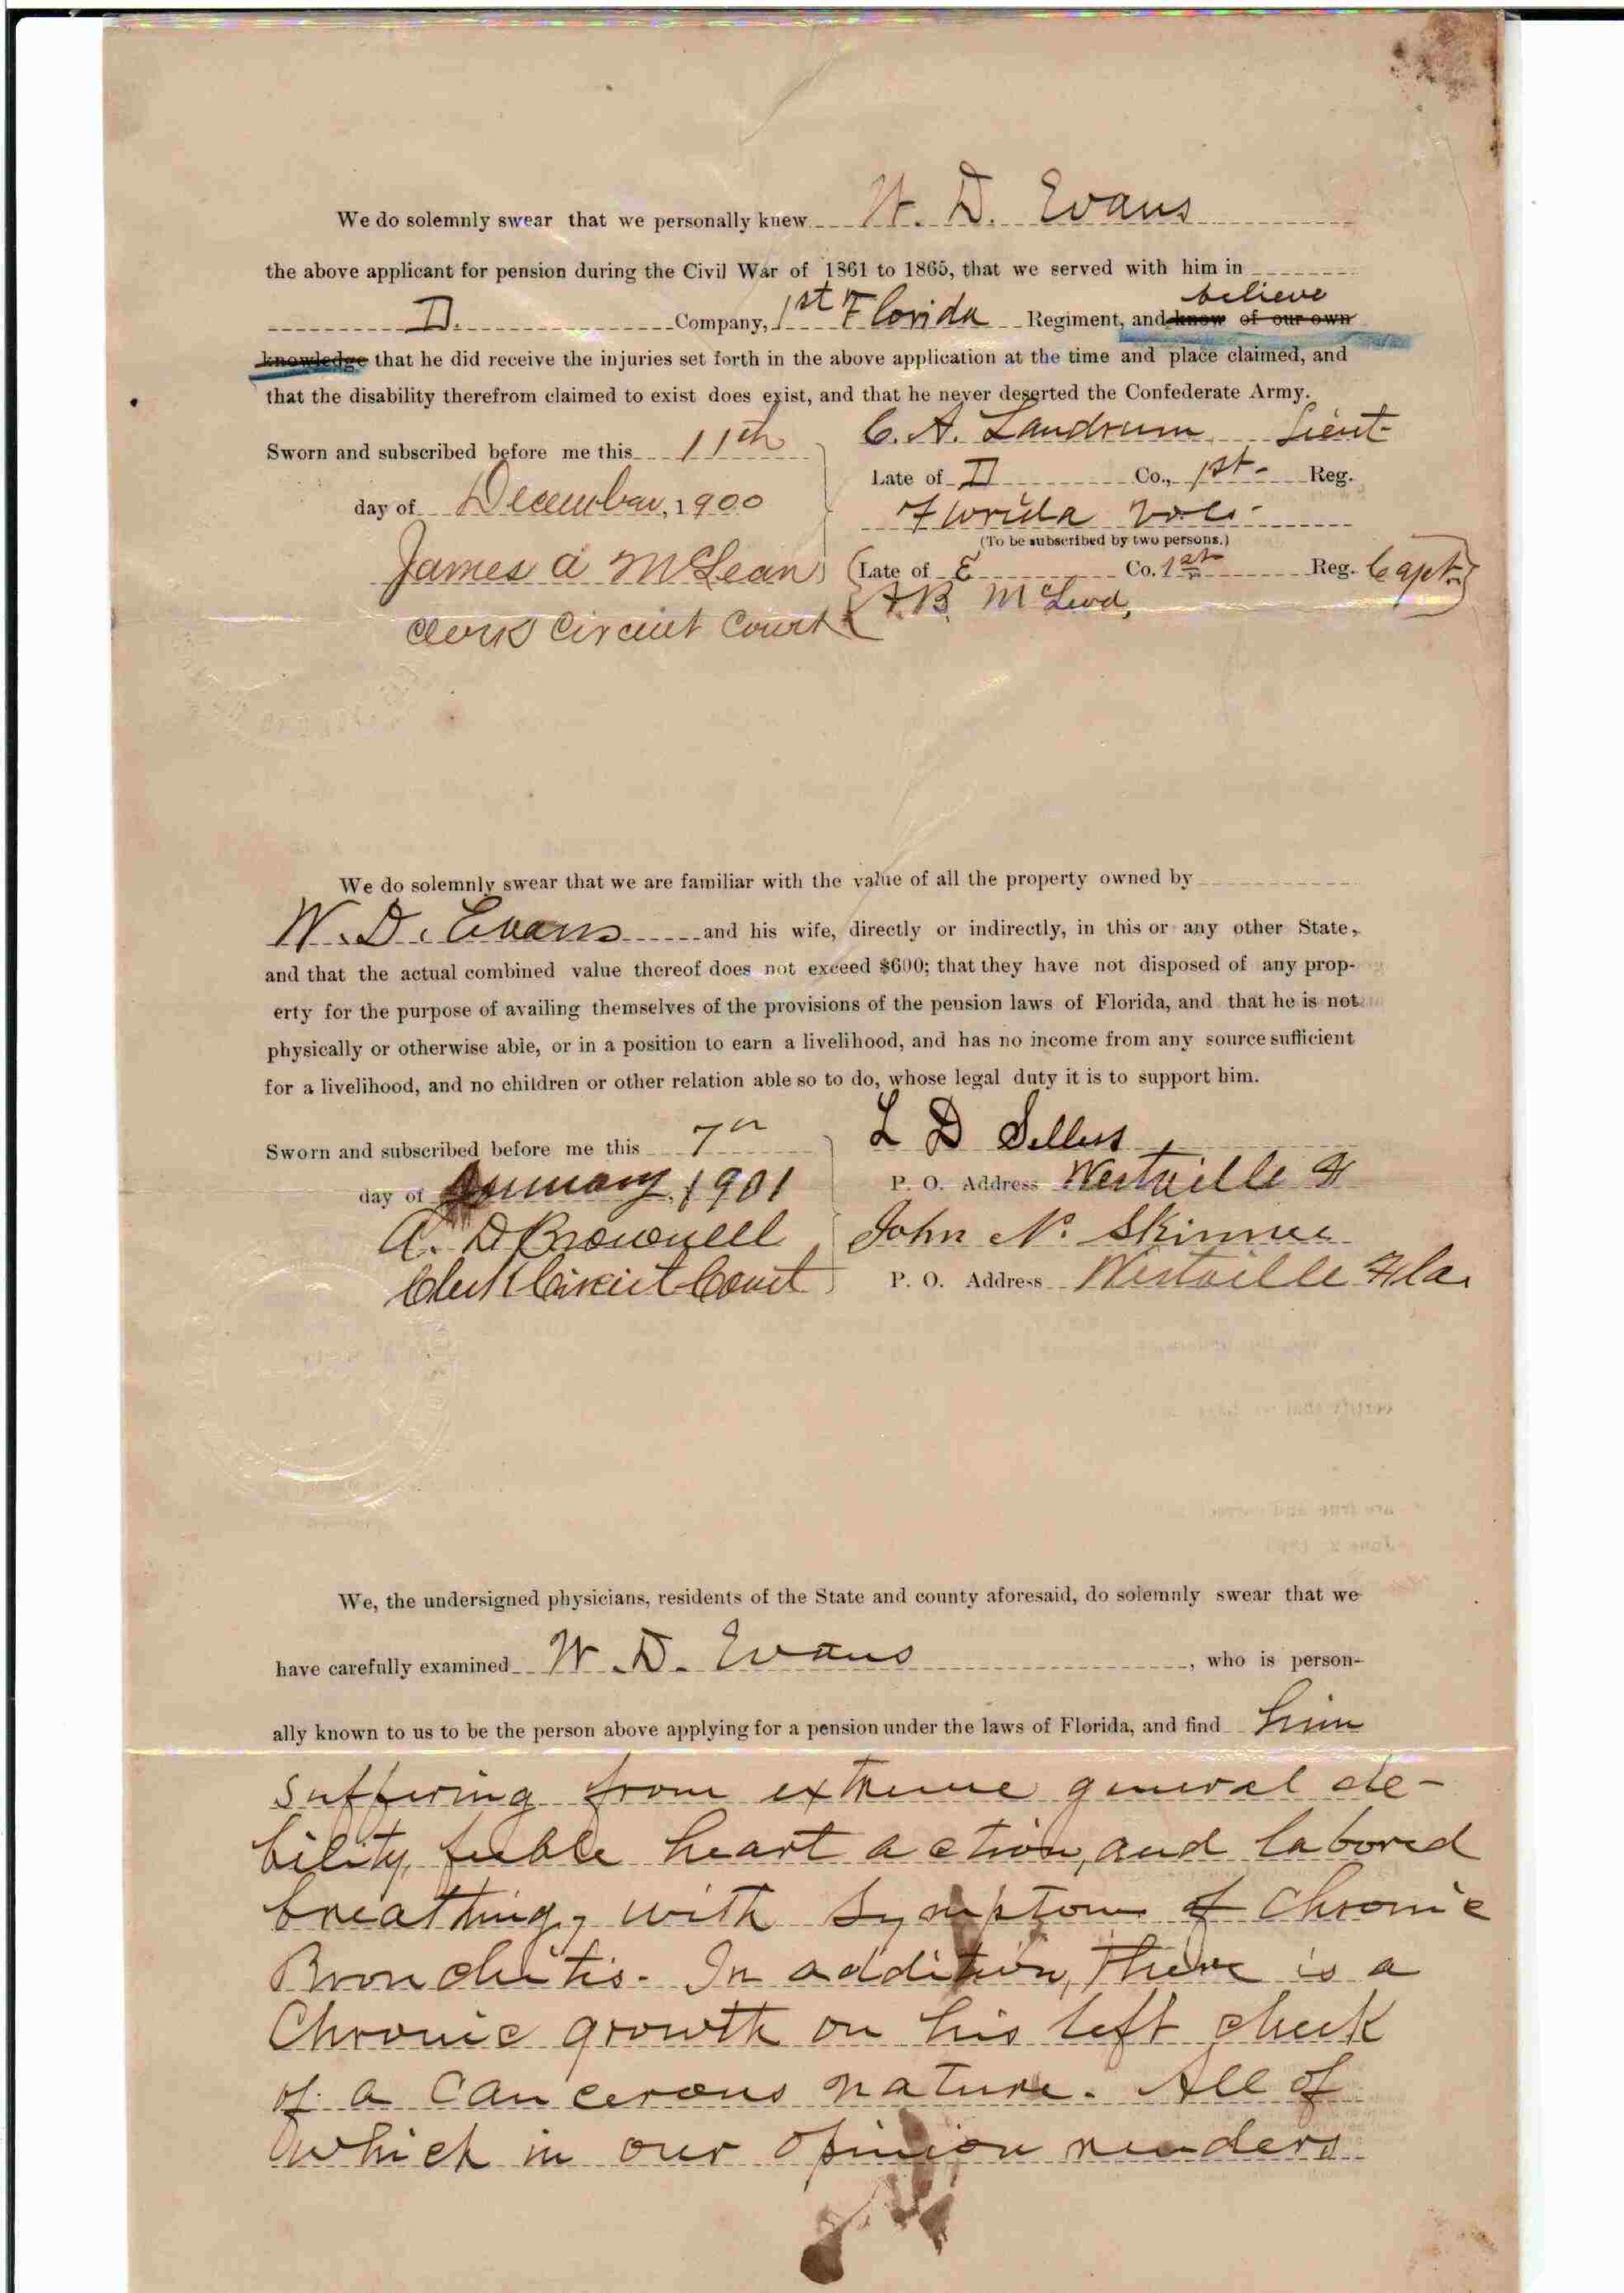 We do solemnly swear that we personally knew W. D. Evans
the above applicant for pension during the Civil War of 1861 to 1865, that we served with him in
D. Company, 1st Florida Regiment, and know of our own believe
knowledge that he did receive the injuries set forth in the above application at the time and place claimed, and
that the disability therefrom claimed to exist does exist, and that he never deserted the Confederate Army.
Sworn and subscribed before me this 11th
day of December, 1900
James A McLean
Clerk Circuit Court
C. A. Landrum Lieut
Late of D Co., 1st Reg.
Florida Vols
(To be subscribed by two persons.)
Late of E Co. 1st Reg. Capt.
A. B. McLeod,
We do solemnly swear that we are familiar with the value of all the property owned by
W. D. Evans and his wife, directly or indirectly, in this or any other State,
and that the actual combined value thereof does not exceed $600; that they have not disposed of any prop-
erty for the purpose of availing themselves of the provisions of the pension laws of Florida, and that he is not
physically or otherwise able, or in a position to earn a livelihood, and has no income from any source sufficient
for a livelihood, and no children or other relation able so to do, whose legal duty it is to support him.
Sworn and subscribed before me this 7th
day of January, 1901
A. D Brownell
Clerk Circuit Court
L D Sellers
P. O. Address Westville Fl
John N. Skinner
P. O. Address Westville Fla.
We, the undersigned physicians, residents of the State and county aforesaid, do solemnly swear that we
have carefully examined W. D. Evans, who is person-
ally known to us to be the person above applying for a pension under the laws of Florida, and find him
suffering from extreme general de-
bility, feeble heart action, and labored
breathing, with symptoms of Chronic
Bronchitis. In addition, there is a
Chronic growth on his left cheek
of a Cancerous nature. All of
which in our opinion renders